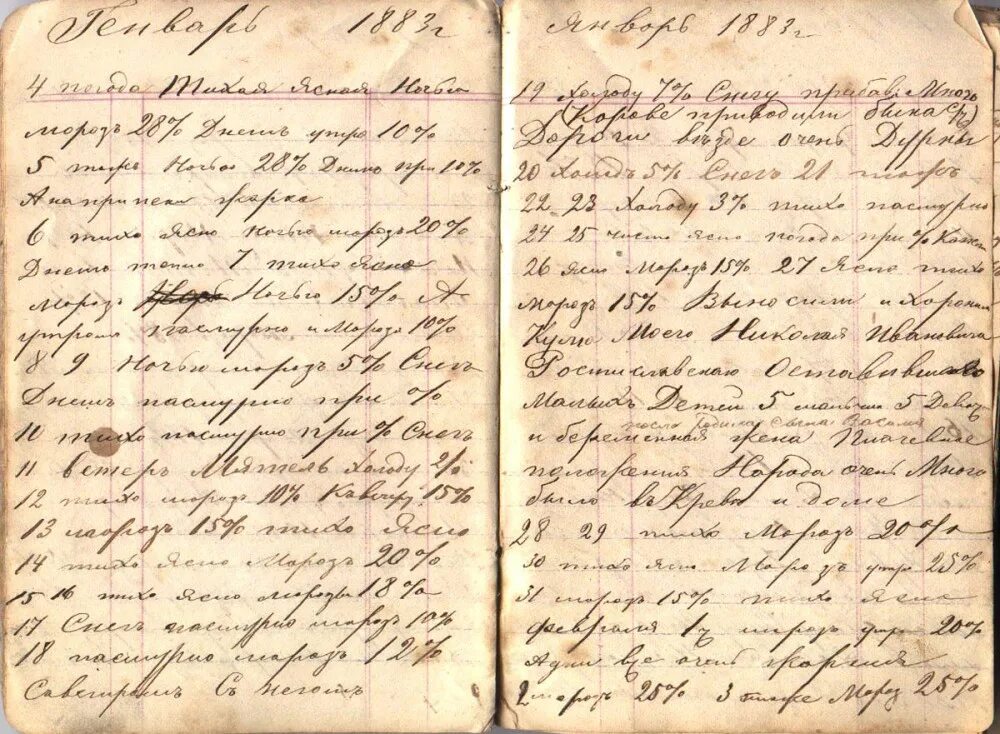 Генварь 1883 г
4 погода Тихая Ясная Ночью
морозъ 28% Днемъ утро 10%
5 тоже Ночью 28% Днемъ при 10%
А на припеки жарко
6 тихо Ясно ночью морозъ 20%
Днемъ тепло 7 тихо Ясно
морозъ Ночью 15% А
утромъ пасмурно и Морозъ 10%
8 9 Ночью морозъ 5% Снегъ
Днемъ пасмурно при %
10 тихо пасмурно при % Снегъ
11 ветеръ Мятель Холоду 2%
12 тихо морозъ 10% Квечеру 15%
13 морозъ 15% тихо Ясно
14 тихо Ясно Морозъ 20%
15 16 тихо Ясно морозы 18%
17 Снегъ пасмурно морозъ 10%
18 пасмурно морозъ 12%
Снегомъ
Январь 1883 г
19 Холоду 7% Снегу прибав Много
(Корове приводили быка
Дороги въезде очень Дурны
20 Холодъ 5% Снегъ 21 тожъ
22 23 Холоду 3% тихо пасмурно
24 25 чисто ясно погода при %
26 Ясно Морозъ 15% 27 Ясно тихо
морозъ 15% Выносили и Хоронили
Кумо Моего Николая Ивановича
Ростиславскаю Оставившаго
Малыхъ Детей 5 мальчи 5 Девоч
после сына Василия
и беременная жена Плачевные
положения Народа очень Много
было в и доме
28 29 тихо Морозъ 20%
30 тихо ясно Морозъ утро 25%
31 морозъ 15% тихо Ясно
февраля 1 морозъ утро 20%
Адни все очень жаркия
2 морозъ 25% 3 тоже Мороз 25%